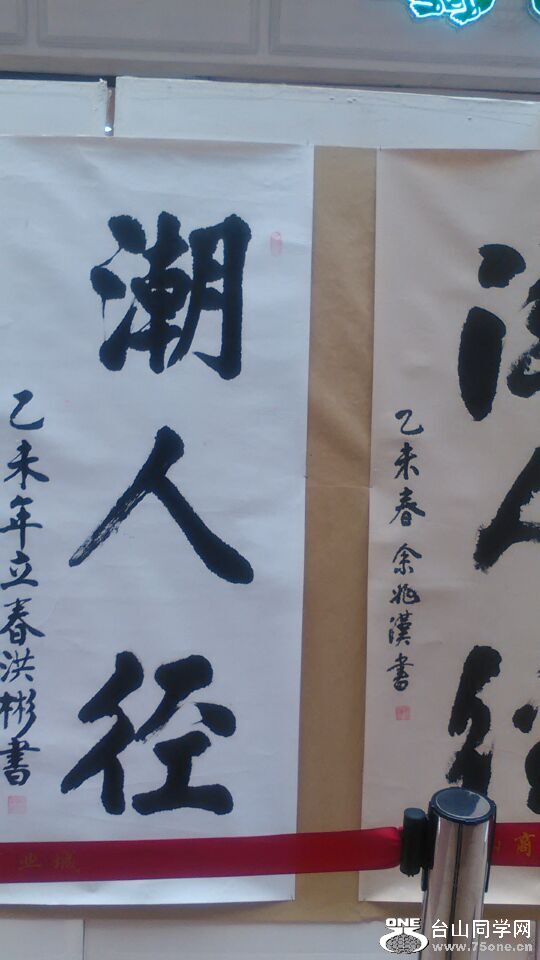 潮人径
乙未年立春洪彬书
潮人径
乙未春 余兆漢书
业城
商
ONE 台山同学网
www.75one.cn